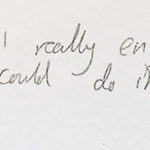 I really en
could do i